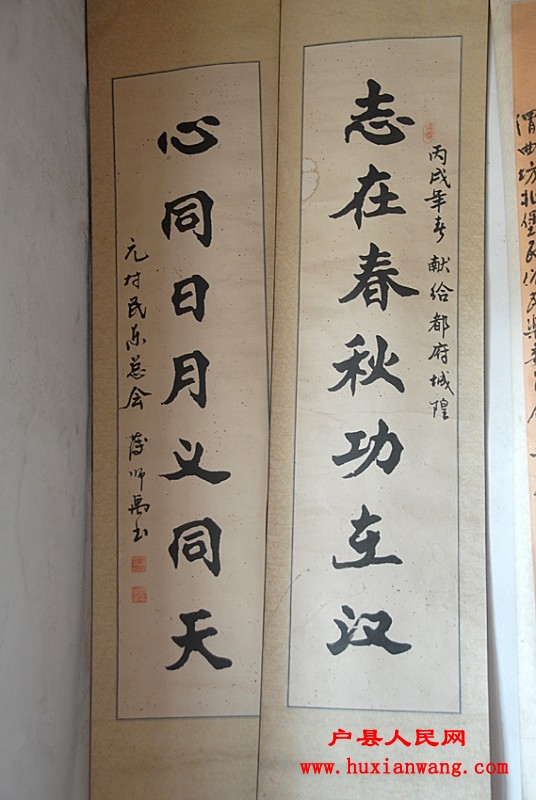 志在春秋功在汉
丙戌年春 献给都府城隍
心同日月义同天
元村民乐总会 薛师禹书
渭曲坊北堡民俗民乐
户县人民网
www.huxianwang.com